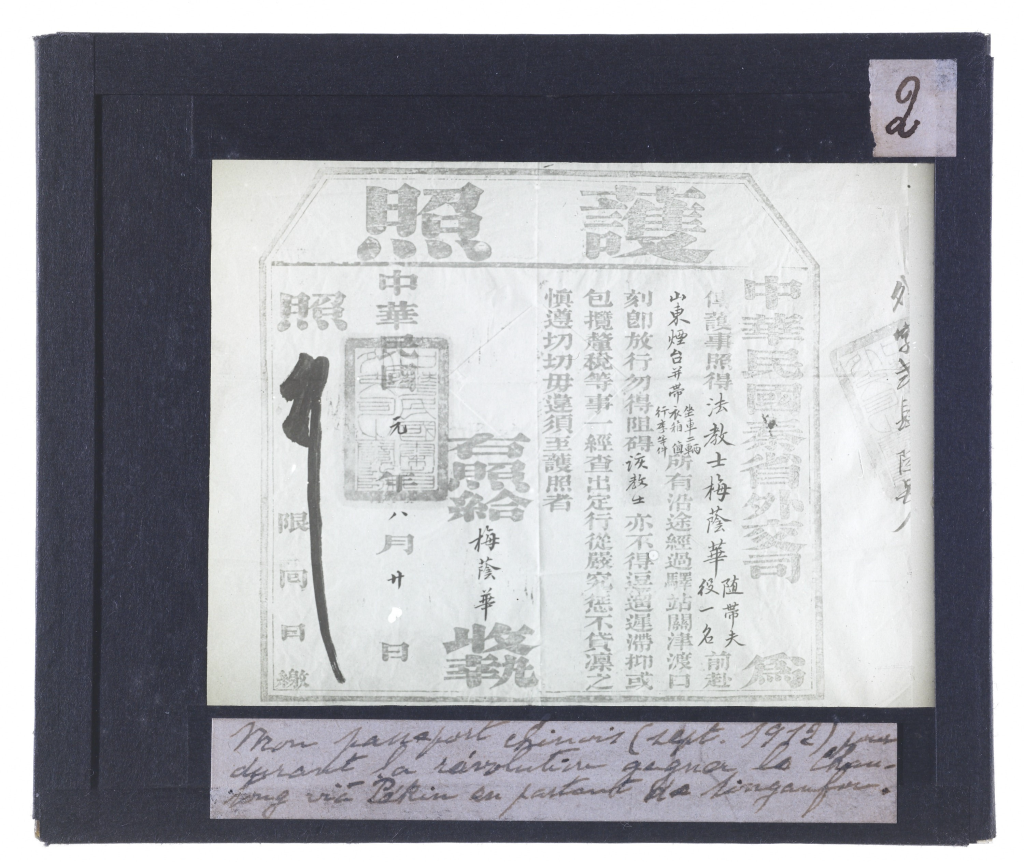 2
護照
中華民國秦省外交司 為
保護事照得法教士梅蔭華隨帶夫役一名前赴
山東煙台并帶衣箱行李等件坐車二輛所有沿途經過驛站關津渡口
刻即放行勿得阻碍該教士亦不得逗遛遲滯抑或
包攬釐稅等事一經查出定行從嚴究懲不貸凜之
慎遵切切毋違須至護照者
右照給 梅蔭華 收執
中華民國元年八月廿日
照
限 回日繳
Mon passeport chinois (sept. 1912) pour
durant la révolution gagner le Chan-
tong viâ Pékin en partant de Singanfou.